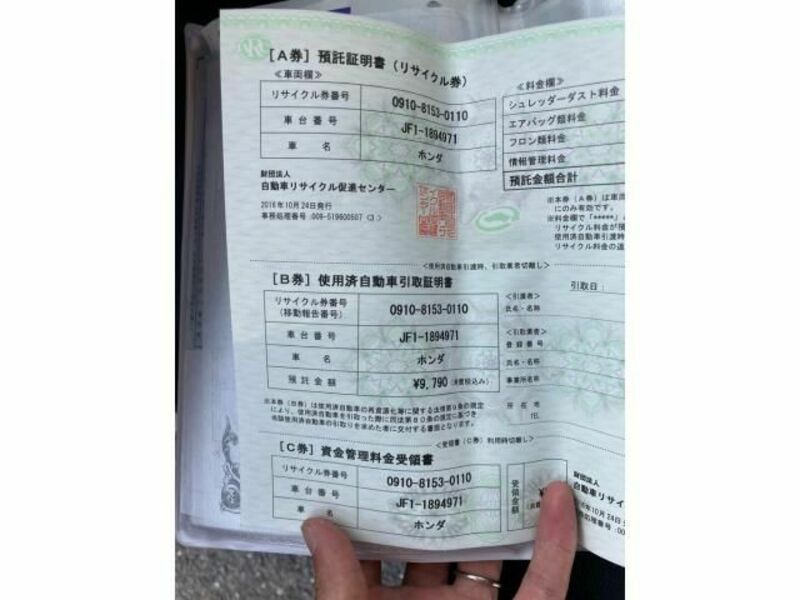 [A券] 預託証明書(リサイクル券)
≪車両欄≫
リサイクル券番号 0910-8153-0110
車台番号 JF1-1894971
車名 ホンダ
≪料金欄≫
シュレッダーダスト料金
エアバッグ類料金
フロン類料金
情報管理料金
預託金額合計
財団法人
自動車リサイクル促進センター
2016年10月24日発行
事務処理番号:009-519600507 <3>
※本券(A券)は車両
にのみ有効です。
※料金欄で「*****」
リサイクル料金が預
使用済自動車引渡時
リサイクル料金の返
<使用済自動車引渡時、引取業者切離し>
[B券] 使用済自動車引取証明書
引取日:
リサイクル券番号
(移動報告番号) 0910-8153-0110
車台番号 JF1-1894971
車名 ホンダ
預託金額 ¥9,790 (消費税込み)
<引渡者>
氏名・名称
<引取業者>
登録番号
氏名・名称
事業所名称
所在地
TEL
※本券(B券)は使用済自動車の再資源化等に関する法律第9条の規定
により、使用済自動車を引取った際に同法第80条の規定に基づき
当該使用済自動車の引取りを求めた者に交付する書面となります。
<受領書(C券)利用時切離し>
[C券] 資金管理料金受領書
リサイクル券番号 0910-8153-0110
車台番号 JF1-1894971
車名 ホンダ
受領金額
財団法人
自動車リサイ
年10月24日